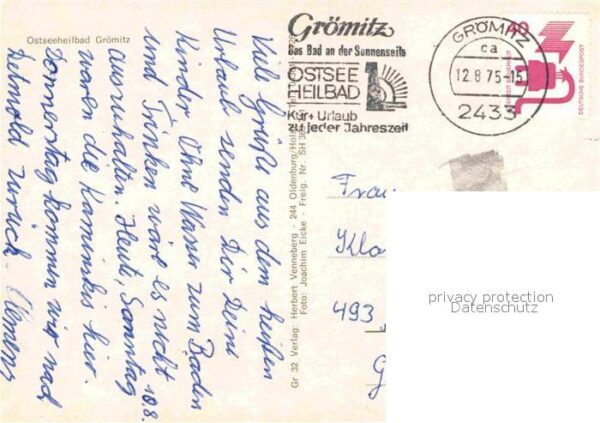 Ostseeheilbad Grömitz
Viele Grüße aus dem heißen
Urlaub senden Dir Deine
Kinder. Ohne Wasser zum Baden
und Trinken wäre es nicht
auszuhalten. Heute, Sonntag 10.8.
waren die Kaminskis hier.
Donnerstag kommen wir nach
Detmold zurück.
Gr 32 Verlag: Herbert Venneberg - 244 Oldenburg/Hol
Foto: Joachim Eicke - Freig. Nr. SH
Grömitz
Das Bad an der Sonnenseite
OSTSEE
HEILBAD
Kur + Urlaub
zu jeder Jahreszeit
GRÖMITZ
ca
12.8.75-15
2433
40
DEUTSCHE BUNDESPOST
Frau
Kla
493
privacy protection
Datenschutz